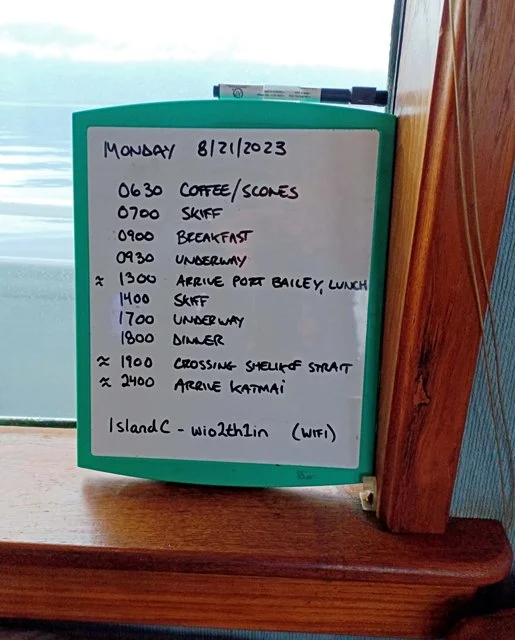 MONDAY 8/21/2023
0630 COFFEE/SCONES
0700 SKIFF
0900 BREAKFAST
0930 UNDERWAY
≈ 1300 ARRIVE PORT BAILEY, LUNCH
1400 SKIFF
1700 UNDERWAY
1800 DINNER
≈ 1900 CROSSING SHELIKOF STRAIT
≈ 2400 ARRIVE KATMAi
IslandC - wio2th1in (WIFI)